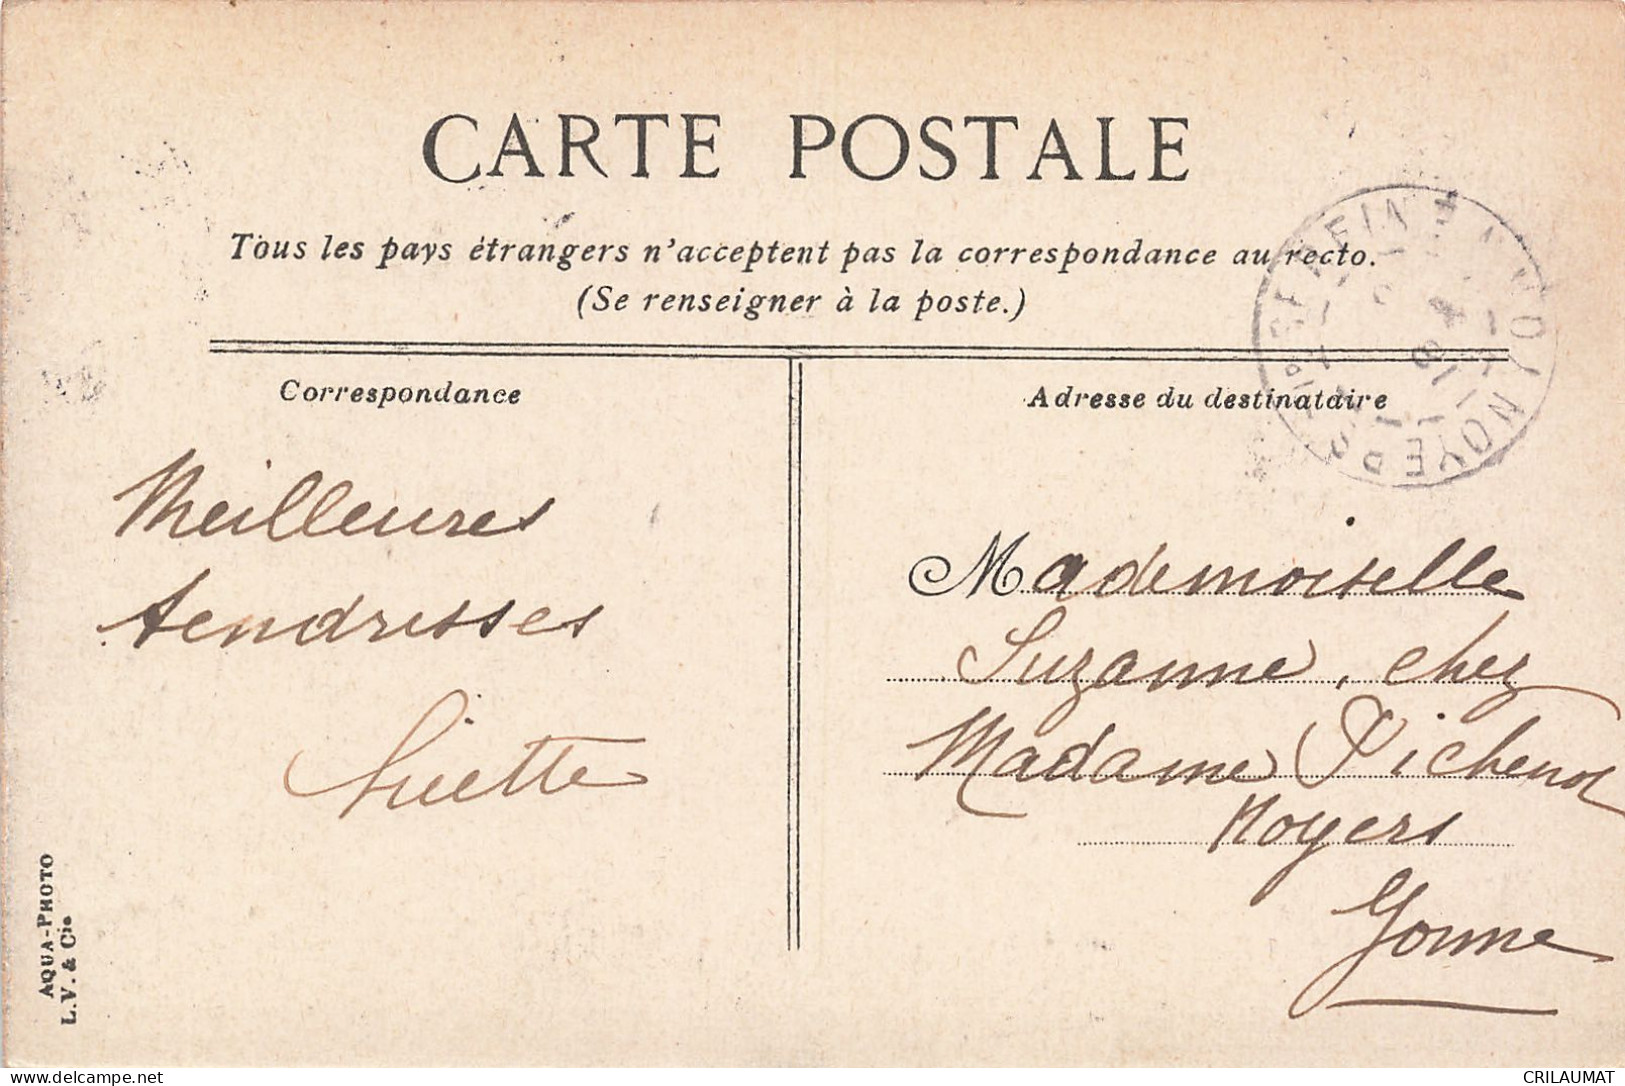 CARTE POSTALE
Tous les pays étrangers n'acceptent pas la correspondance au recto.
(Se renseigner à la poste.)
Correspondance
Adresse du destinataire
Meilleures
tendresses
Mademoiselle
Suzanne, chez
Madame Pichenot
Noyers
Yonne
AQUA-PHOTO
L.V. & Cie
CRILAUMAT